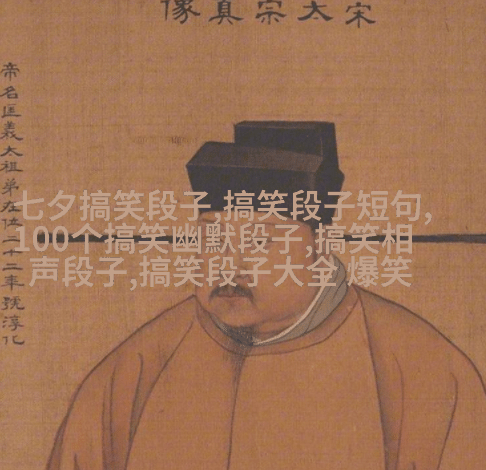 宋太宗真像
帝名匡義太祖弟在位二十二年號淳化
七夕搞笑段子,搞笑段子短句,
100个搞笑幽默段子,搞笑相
声段子,搞笑段子大全 爆笑